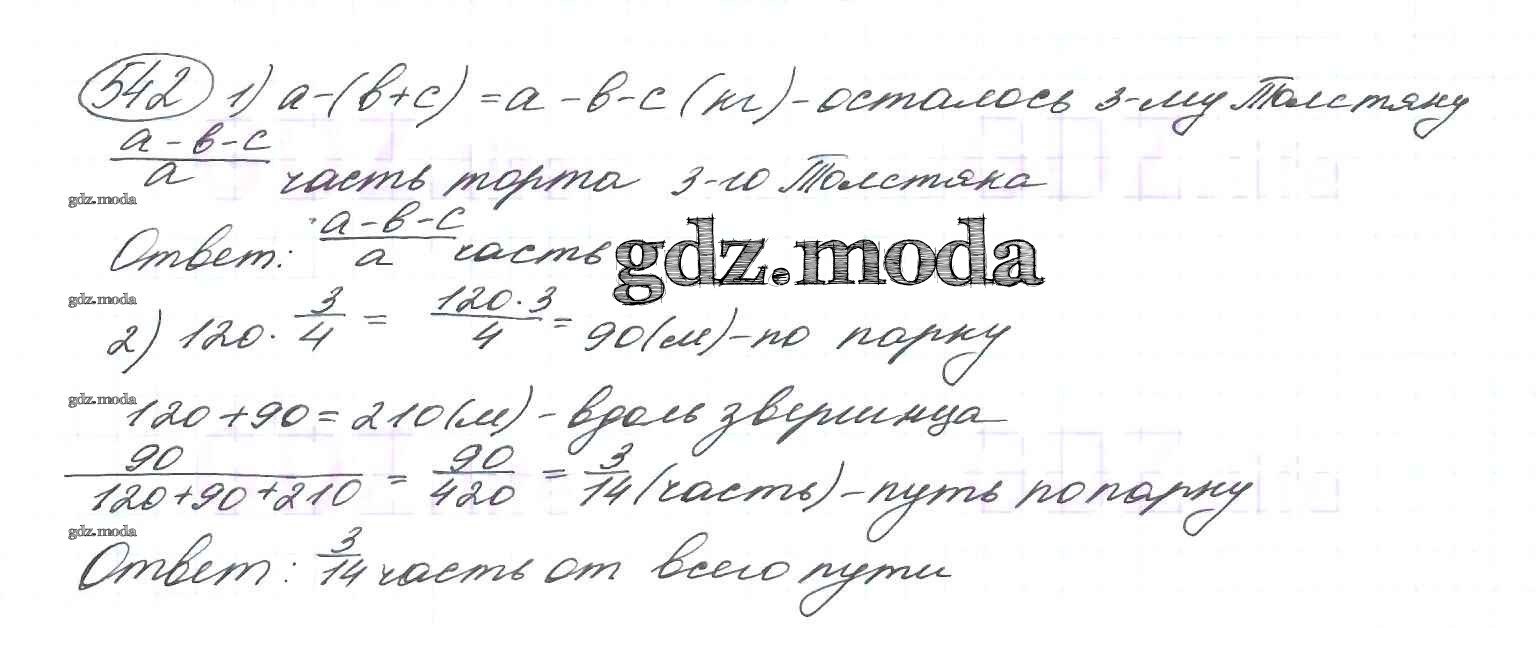 542 1) a-(в+с) = а-в-с (кг) - осталось 3-му Толстяку
(а-в-с)/а часть торта 3-го Толстяка
gdz.moda
Ответ: (а-в-с)/а часть
gdz.moda
gdz.moda
2) 120 · 3/4 = (120·3)/4 = 90(м) - по парку
gdz.moda
120+90=210(м) - вдоль зверинца
90/(120+90+210) = 90/420 = 3/14 (часть) - путь по парку
gdz.moda
Ответ: 3/14 часть от всего пути